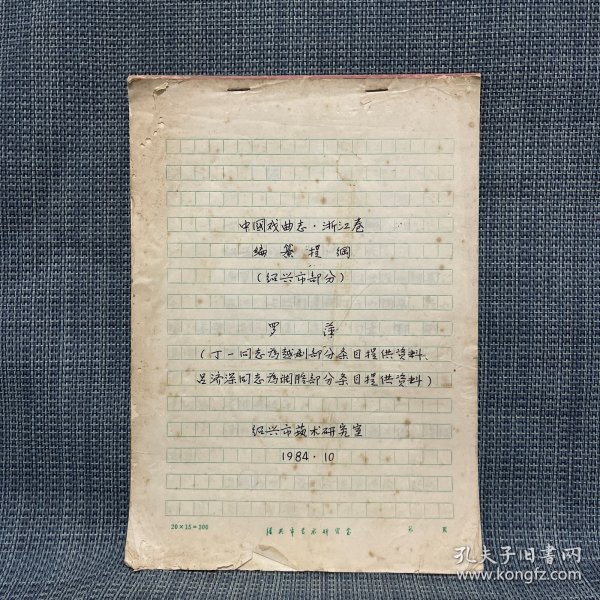 中国戏曲志·浙江卷
编纂提纲
(绍兴市部分)
罗 萍
(丁一同志为越剧部分条目提供资料、
吕济深同志为调腔部分条目提供资料)
绍兴市艺术研究室
1984.10
20×15=300 绍兴市艺术研究室 第 页
孔夫子旧书网
www.kongfz.com